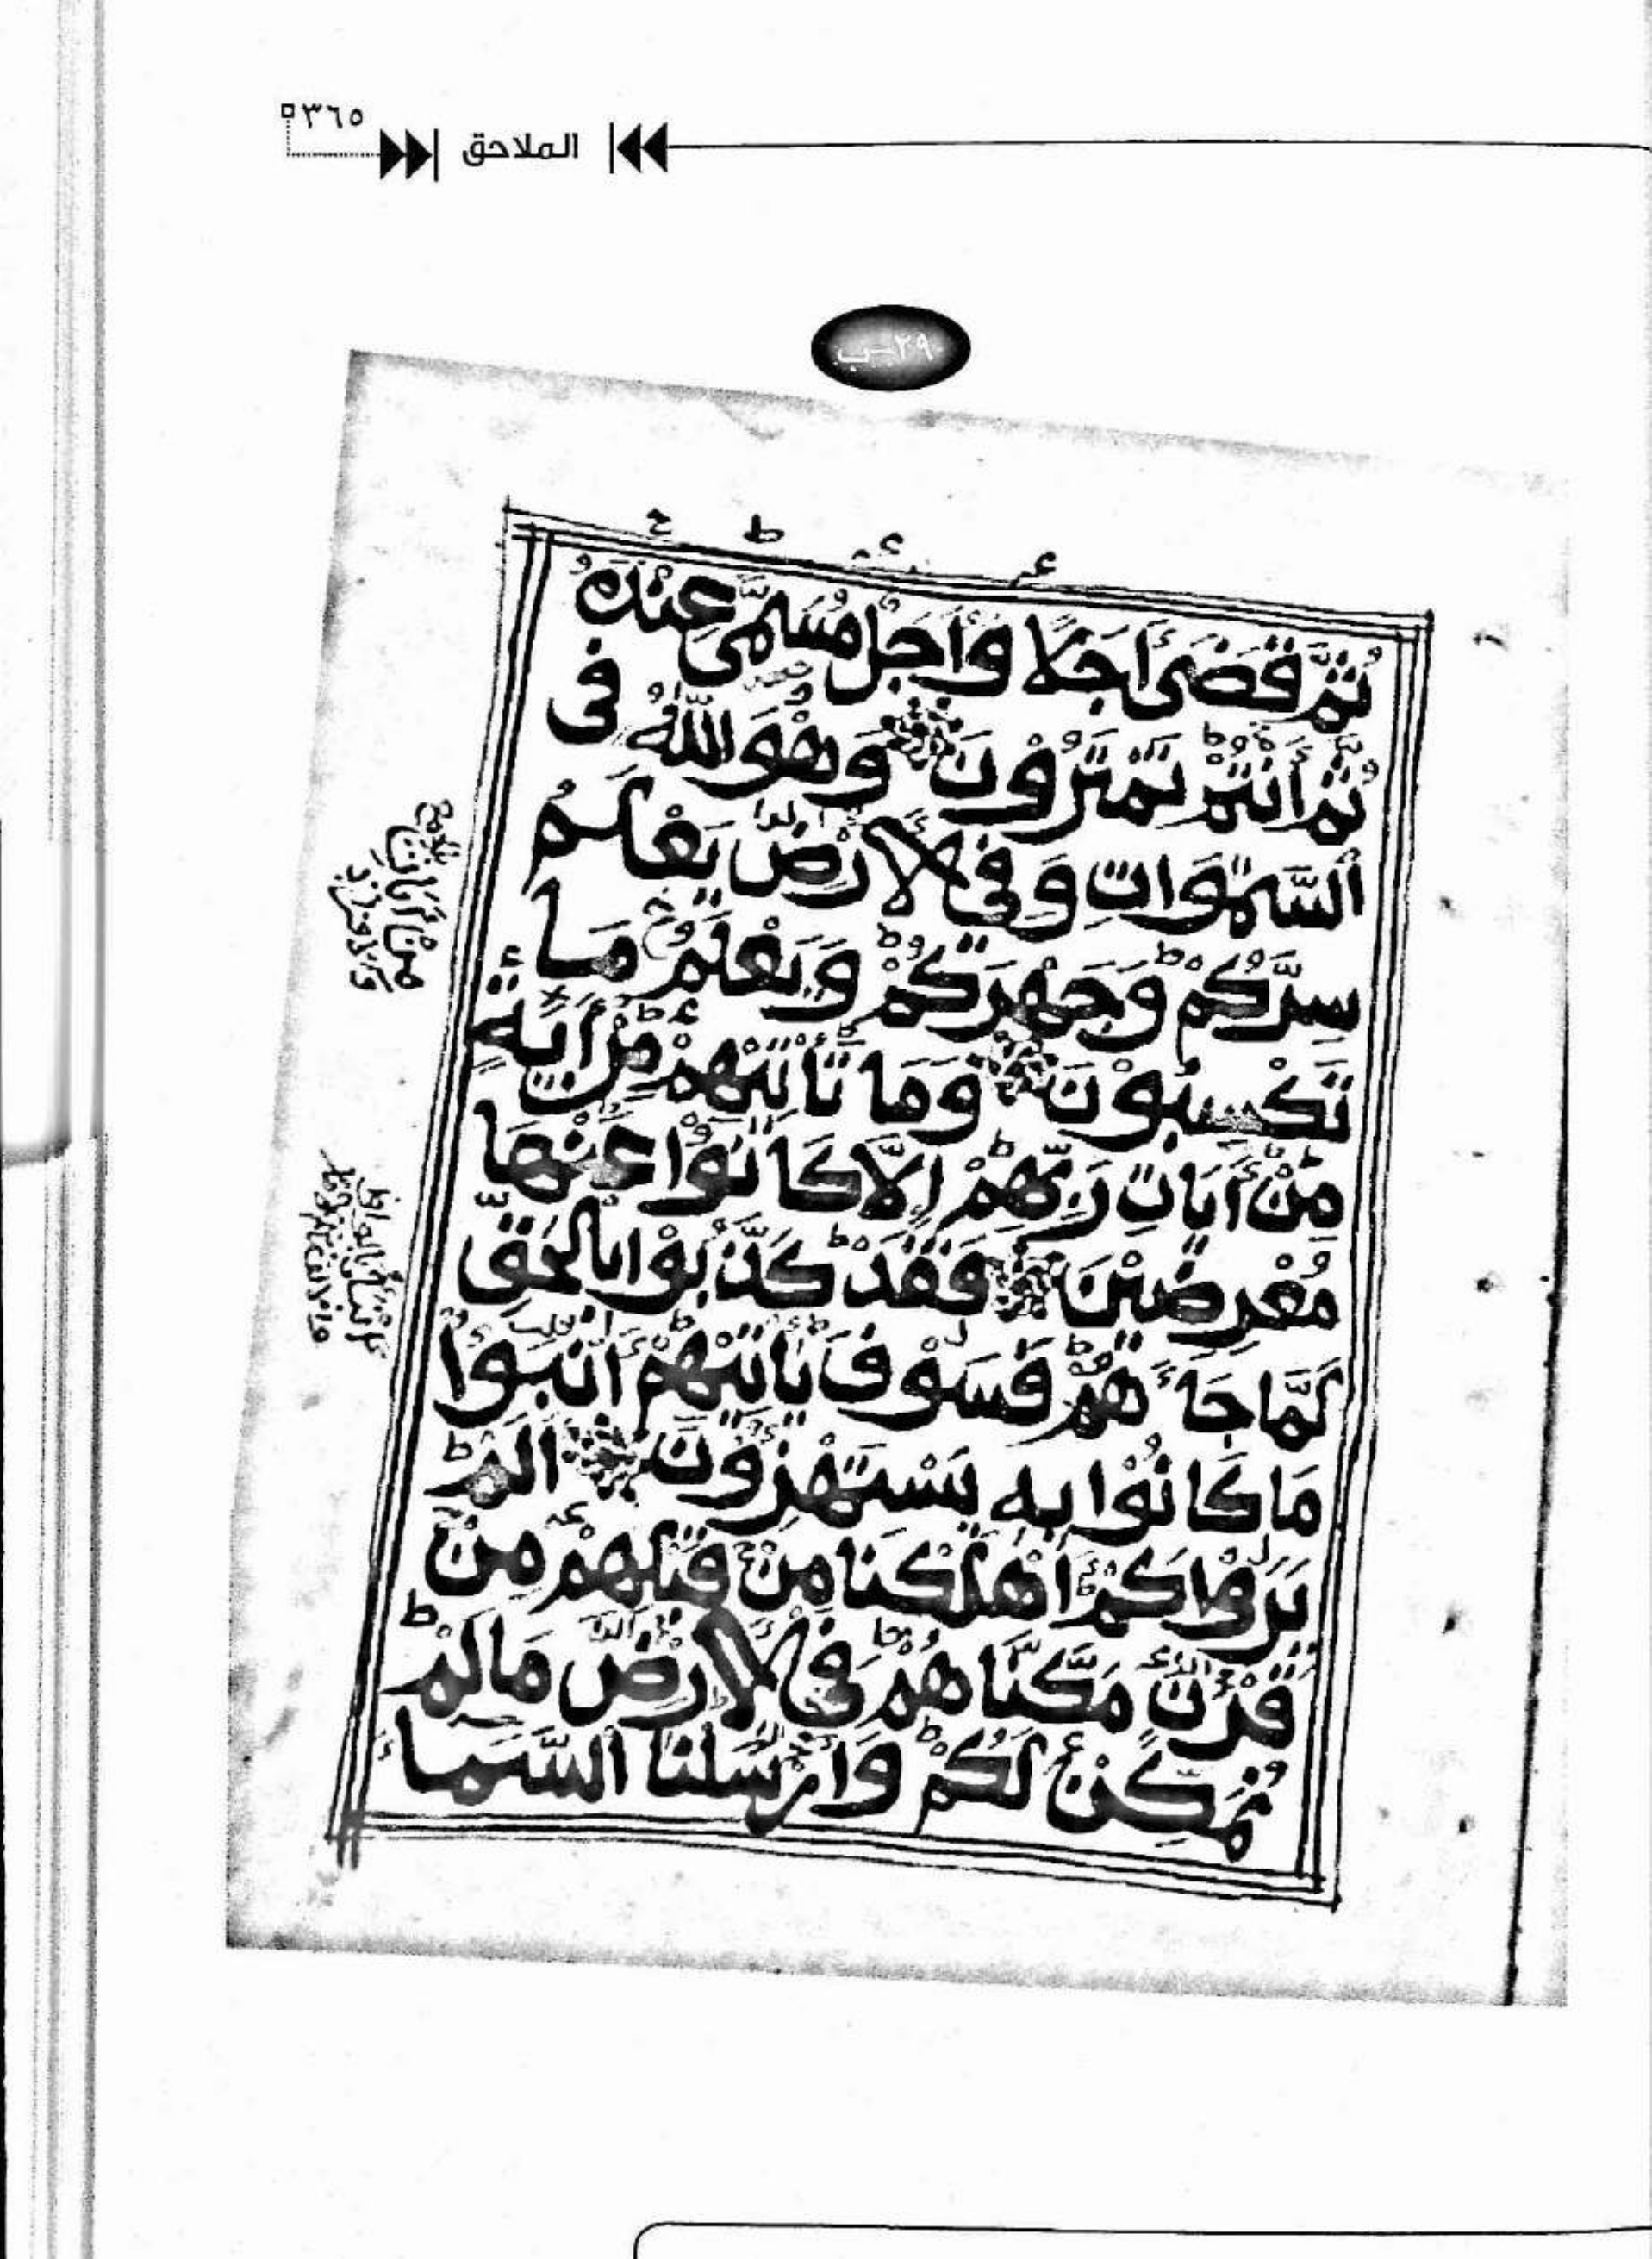 ٣٦٥
الملاحق
٣٩-ب
ثُمَّ قَضَىٰ أَجَلًا وَأَجَلٌ مُّسَمًّى عِنْدَهُ
ثُمَّ أَنْتُمْ تَمْتَرُوْنَ وَهُوَ اللَّهُ فِى
السَّمٰوَاتِ وَفِى الْأَرْضِ يَعْلَمُ
سِرَّكُمْ وَجَهْرَكُمْ وَيَعْلَمُ مَا
تَكْسِبُوْنَ وَمَا تَأْتِيْهِمْ مِّنْ أٰيَةٍ
مِّنْ أَيَاتِ رَبِّهِمْ إِلَّا كَانُوْا عَنْهَا
مُعْرِضِيْنَ فَقَدْ كَذَّبُوْا بِالْحَقِّ
لَمَّا جَاءَهُمْ فَسَوْفَ يَأْتِيْهِمْ أَنْبَٰؤُا
مَا كَانُوْا بِهِ يَسْتَهْزِءُوْنَ أَلَمْ
يَرَوْا كَمْ أَهْلَكْنَا مِنْ قَبْلِهِمْ مِنْ
قَرْنٍ مَّكَّنَّاهُمْ فِى الْأَرْضِ مَا لَمْ
نُمَكِّنْ لَكُمْ وَأَرْسَلْنَا السَّمَاءَ